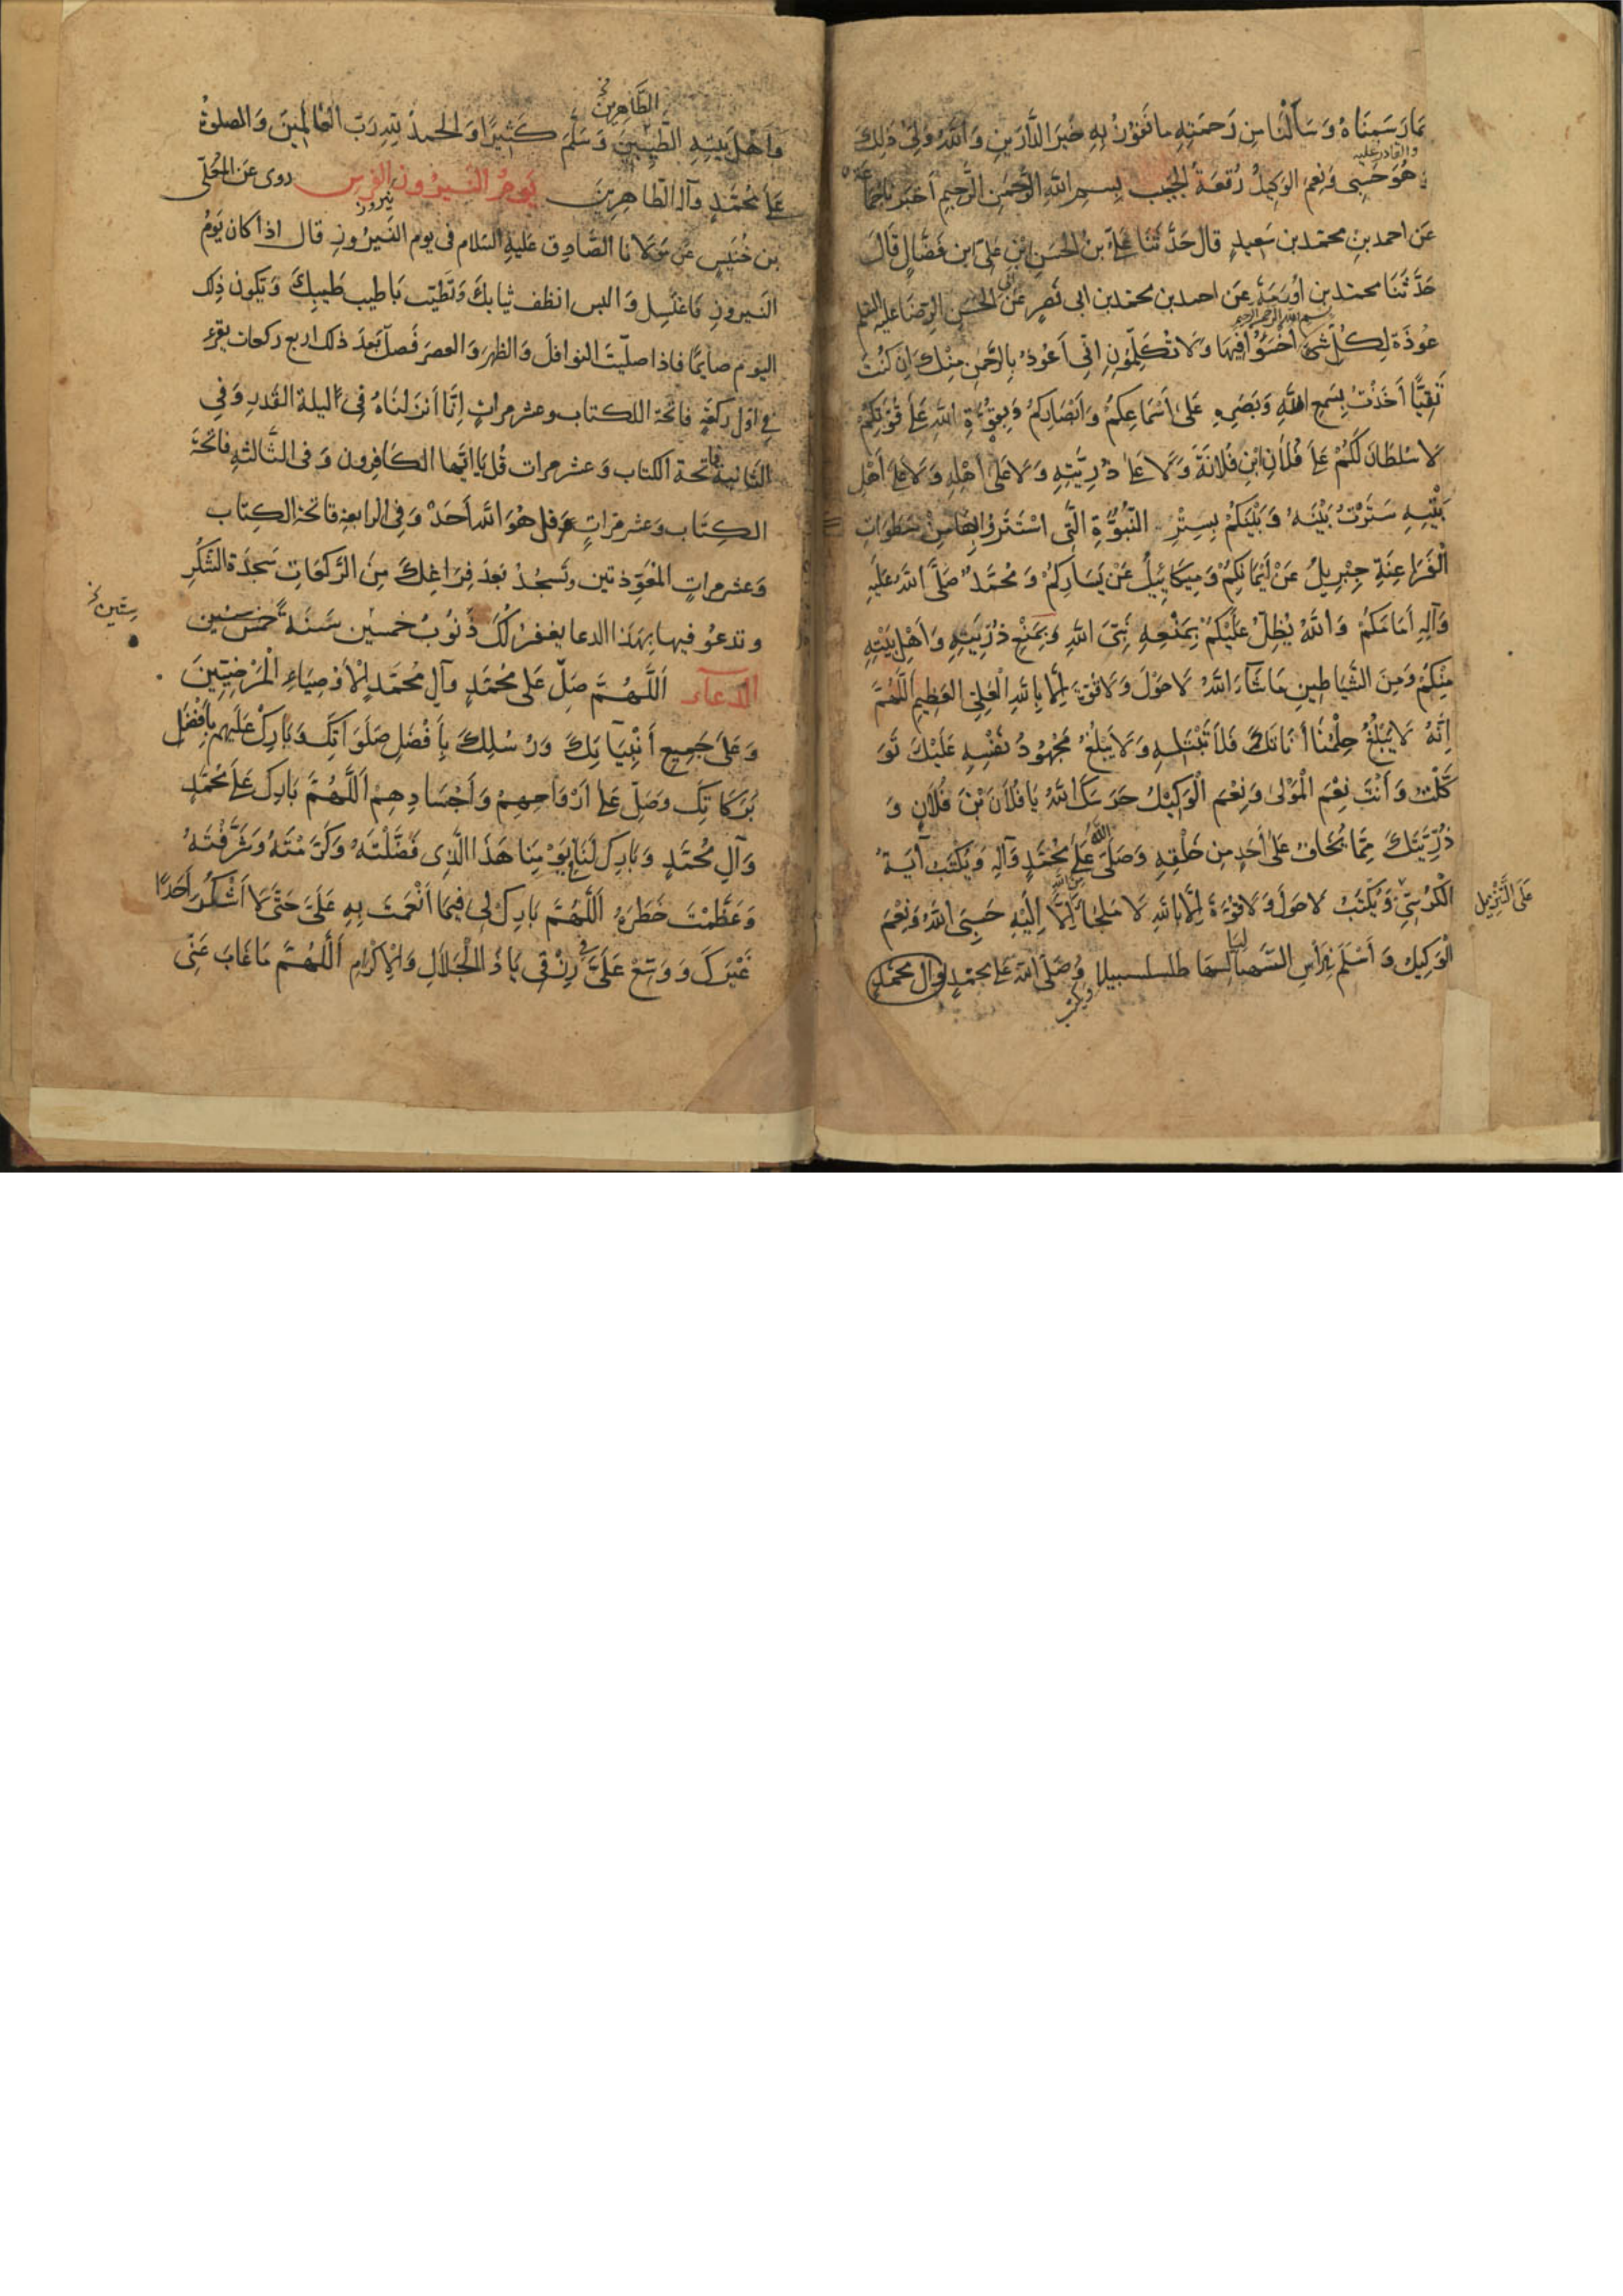 بما رسمناه وسألنا من رحمته ما نفوز به خير الدارين والله ولي ذلك
والقادر عليه
وهو حسبي ونعم الوكيل رقعة الجيب بسم الله الرحمن الرحيم أخبرنا
عن احمد بن محمد بن سعيد قال حدثنا علي بن الحسن بن علي ابن فضال قال
حدثنا محمد بن أورمة عن احمد بن محمد بن ابي نصر عن الحسن الرضا عليه السلم
بسم الله الرحمن الرحيم
عوذة لكل شيء أخسؤا فيها ولا تكلمون اني أعوذ بالرحمن منك ان كنت
تقيا أخذت بسمع الله وبصره على أسماعكم وأبصاركم وبقوة الله على قوتكم
لا سلطان لكم على فلان ابن فلانة ولا على ذريته ولا على أهله ولا على أهل
بيته سترت بينه وبينكم بستر النبوة التي استتروا بها من سطوات
الفراعنة جبريل عن أيمانكم وميكائيل عن يساركم ومحمد صلى الله عليه
وآله أمامكم والله يظل عليكم بمنعه نبي الله وبمنع ذريته وأهل بيته
منكم ومن الشياطين ما شاء الله لا حول ولا قوة إلا بالله العلي العظيم اللهم
إنه لا يبلغ حلمنا أناتك فلا تبتله ولا يبلغ مجهود نفسه عليك تو
كلت وأنت نعم المولى ونعم الوكيل حرسك الله يا فلان بن فلان و
ذريتك مما يخاف على أحد من خلقه وصلى الله على محمد وآله ويكتب آية
الكرسي ويكتب لا حول ولا قوة إلا بالله لا ملجأ من الله إلا إليه حسبي الله ونعم
على التنزيل
الوكيل وأسلم في رأس الشهبا لسها طلسلسبيلا وصلى الله على محمد وال محمد
ويكتب
الطاهرين خ
وأهل بيته الطيبين وسلم كثيرا والحمد لله رب العالمين والصلوة
على محمد وآله الطاهرين يوم النيروز الفرس روى عن المعلى
نيروز
بن خنيس عن مولانا الصادق عليه السلام في يوم النيروز قال اذا كان يوم
النيروز فاغتسل والبس انظف ثيابك وتطيب باطيب طيبك وتكون ذلك
اليوم صايما فاذا صليت النوافل والظهر والعصر فصل بعد ذلك اربع ركعات يقرء
في اول ركعة فاتحة الكتاب وعشر مرات إنا أنزلناه في ليلة القدر وفي
الثانية فاتحة الكتاب وعشر مرات قل يا ايها الكافرون وفى الثالثه فاتحة
الكتاب وعشر مرات وقل هو الله أحد وفي الرابعة فاتحة الكتاب
وعشر مرات المعوذتين وتسجد بعد فراغك من الركعات سجدة الشكر
وتدعو فيها بهذا الدعا يغفر لك ذنوب خمسين سنة خمس سنين
ستين خ
الدعاء اللهم صل على محمد وآل محمد الأوصياء المرضيين
وعلى جميع أنبيائك ورسلك بأفضل صلواتك وبارك عليهم بأفضل
بركاتك وصل على أرواحهم وأجسادهم اللهم بارك على محمد
وآل محمد وبارك لنا في يومنا هذا الذي فضلته وكرمته وشرفته
وعظمت خطره اللهم بارك لي فيما أنعمت به علي حتى لا أشكر أحدا
غيرك ووسع علي في رزقي يا ذا الجلال والإكرام اللهم ما غاب عني